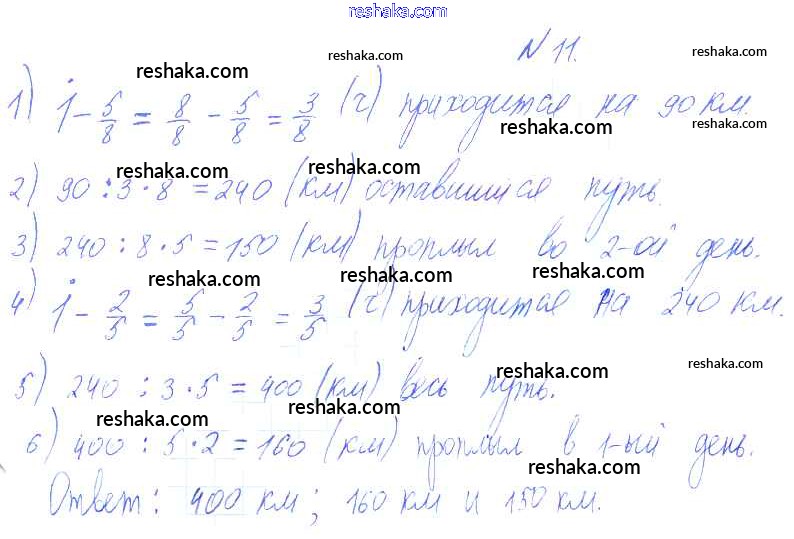 reshaka.com
№ 11.
reshaka.com reshaka.com
reshaka.com
1) 1 - 5/8 = 8/8 - 5/8 = 3/8 (ч) приходится на 90 км.
reshaka.com reshaka.com
reshaka.com reshaka.com
2) 90 : 3 · 8 = 240 (км) оставшийся путь.
reshaka.com
3) 240 : 8 · 5 = 150 (км) проплыл во 2-ой день.
reshaka.com reshaka.com reshaka.com
4) 1 - 2/5 = 5/5 - 2/5 = 3/5 (ч) приходится на 240 км.
reshaka.com reshaka.com
5) 240 : 3 · 5 = 400 (км) весь путь.
reshaka.com reshaka.com
6) 400 : 5 · 2 = 160 (км) проплыл в 1-ый день.
reshaka.com reshaka.com
Ответ: 400 км; 160 км и 150 км.